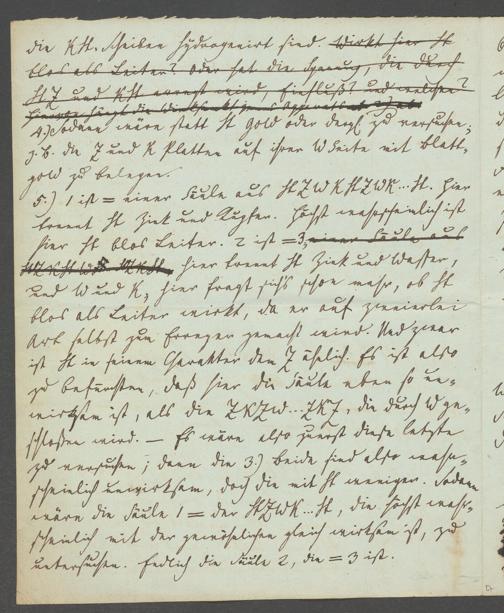 die K St. Scheiben hydrogenirt sind. Wirkt hier St
blos als Leiter? Oder hat die Spannung, die durch
St Z und K St erregt wird, Einfluß? und welchen?
4.) Sodann wäre statt St Gold oder dergl. zu versuchen,
z. B. die Z und K Platten auf ihrer W Seite mit Blatt-
gold zu belegen.
5.) 1 ist = einer Säule aus St Z W K St Z W K ... St. Hier
trennt St Zink und Kupfer. Höchst wahrscheinlich ist
hier St blos Leiter. 2 ist = 3, einer Säule aus
hier trennt St Zink und Wasser,
und W und K, hier fragt sichs schon mehr, ob St
blos als Leiter wirkt, da er auf zweierlei
Art selbst zum Erreger gemacht wird. Und zwar
ist St in seinem Charakter dem Z ähnlich. Es ist also
zu befürchten, daß hier die Säule eben so un-
wirksam ist, als die Z K Z W ... Z K Z, die durch W ge-
schlossen wird. — Es wäre also zuerst diese letzte
zu versuchen; denn die 3.) beide sind also wahr-
scheinlich unwirksam, doch die mit St weniger. Sodann
wäre die Säule 1 = der St Z W K ... St, die höchst wahr-
scheinlich mit der gewöhnlichen gleich wirksam ist, zu
untersuchen. Endlich die Säule 2, die = 3 ist.